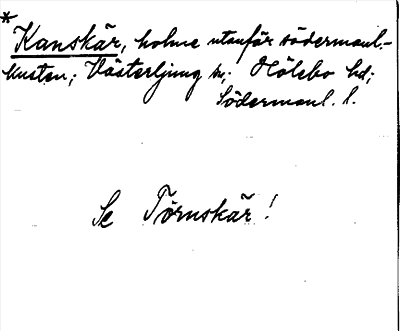 *
Kanskär, holme utanför södermanl.-
kusten; Västerljung sn; Hölebo hd;
Södermanl. l.
Se Törnskär!